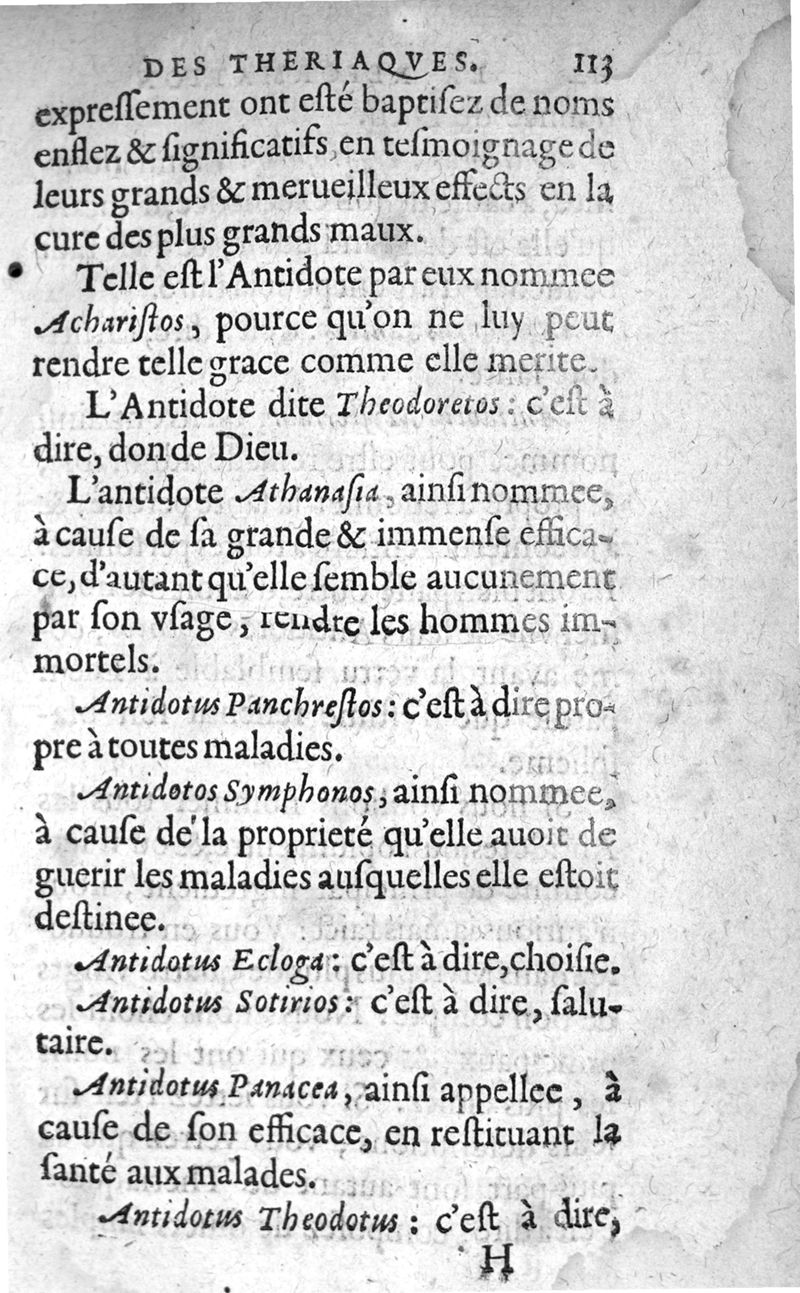 DES THERIAQVES. 113
expreſſement ont eſté baptiſez de noms
enflez & ſignificatifs, en teſmoignage de
leurs grands & merueilleux effects en la
cure des plus grands maux.
Telle eſt l'Antidote par eux nommee
Achariſtos, pource qu'on ne luy peut
rendre telle grace comme elle merite.
L'Antidote dite Theodoretos : c'eſt à
dire, don de Dieu.
L'antidote Athanaſia, ainſi nommee,
à cauſe de ſa grande & immenſe effica-
ce, d'autant qu'elle ſemble aucunement
par ſon vſage, rendre les hommes im-
mortels.
Antidotus Panchreſtos : c'eſt à dire pro-
pre à toutes maladies.
Antidotos Symphonos, ainſi nommee,
à cauſe de la proprieté qu'elle auoit de
guerir les maladies auſquelles elle eſtoit
deſtinee.
Antidotus Ecloga : c'eſt à dire, choiſie.
Antidotus Sotirios : c'eſt à dire, ſalu-
taire.
Antidotus Panacea, ainſi appellee, à
cauſe de ſon efficace, en reſtituant la
ſanté aux malades.
Antidotus Theodotus : c'eſt à dire,
H